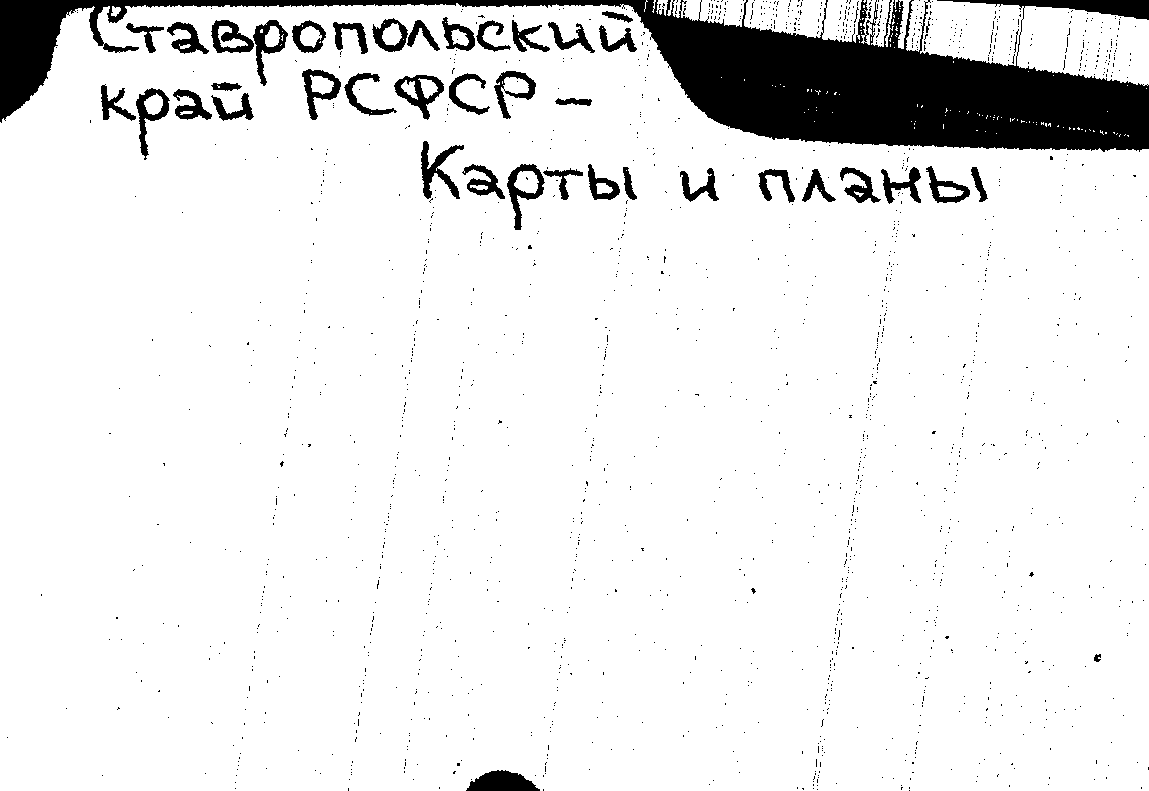 Ставропольский
край РСФСР –
Карты и планы